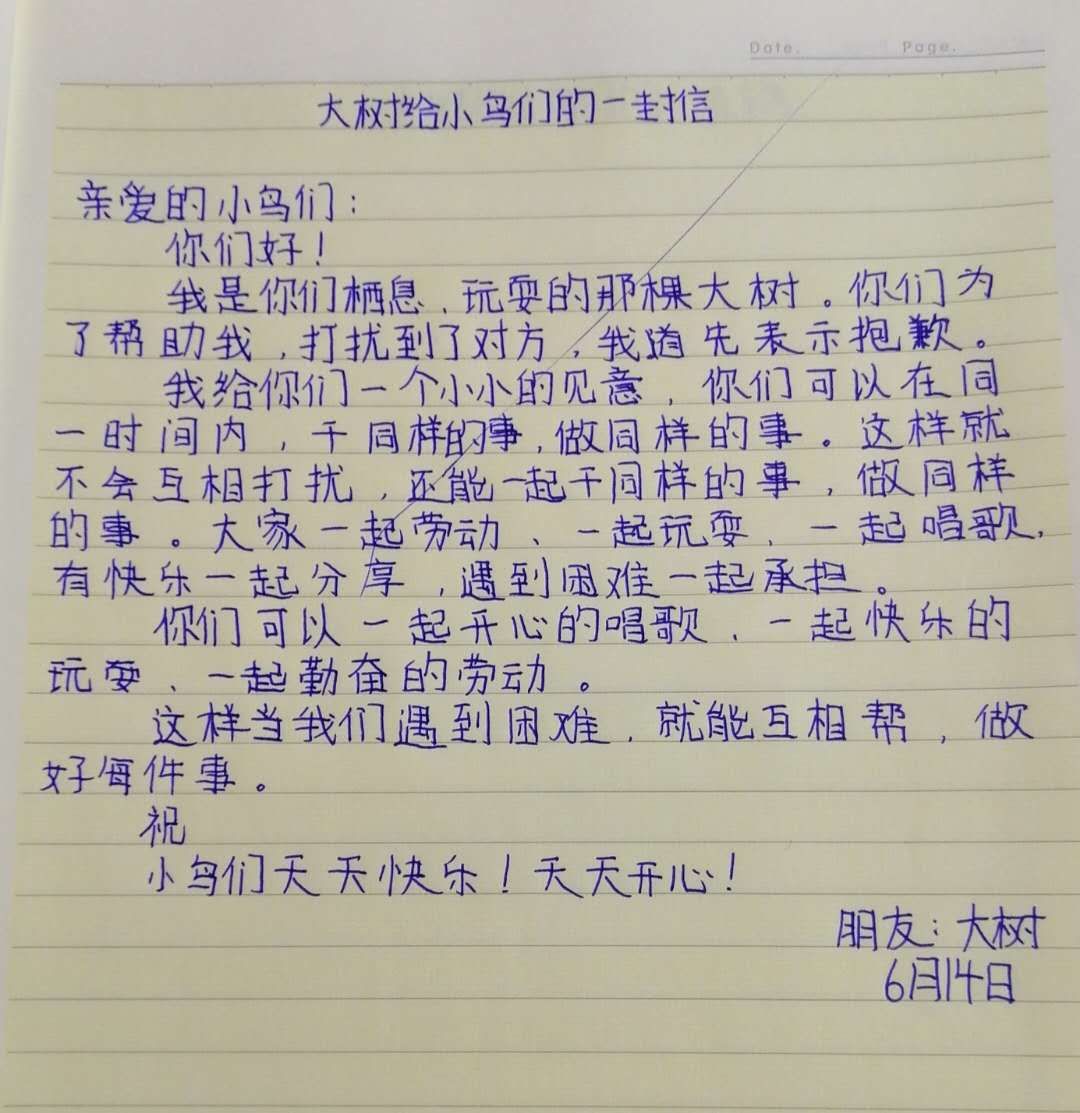 Date. Page.
大树给小鸟们的一封信
亲爱的小鸟们：
你们好！
我是你们栖息、玩耍的那棵大树。你们为
了帮助我，打扰到了对方，我道先表示抱歉。
我给你们一个小小的见意，你们可以在同
一时间内，干同样的事，做同样的事。这样就
不会互相打扰，还能一起干同样的事，做同样
的事。大家一起劳动、一起玩耍、一起唱歌，
有快乐一起分享，遇到困难一起承担。
你们可以一起开心的唱歌、一起快乐的
玩耍、一起勤奋的劳动。
这样当我们遇到困难，就能互相帮，做
好每件事。
祝
小鸟们天天快乐！天天开心！
朋友：大树
6月14日